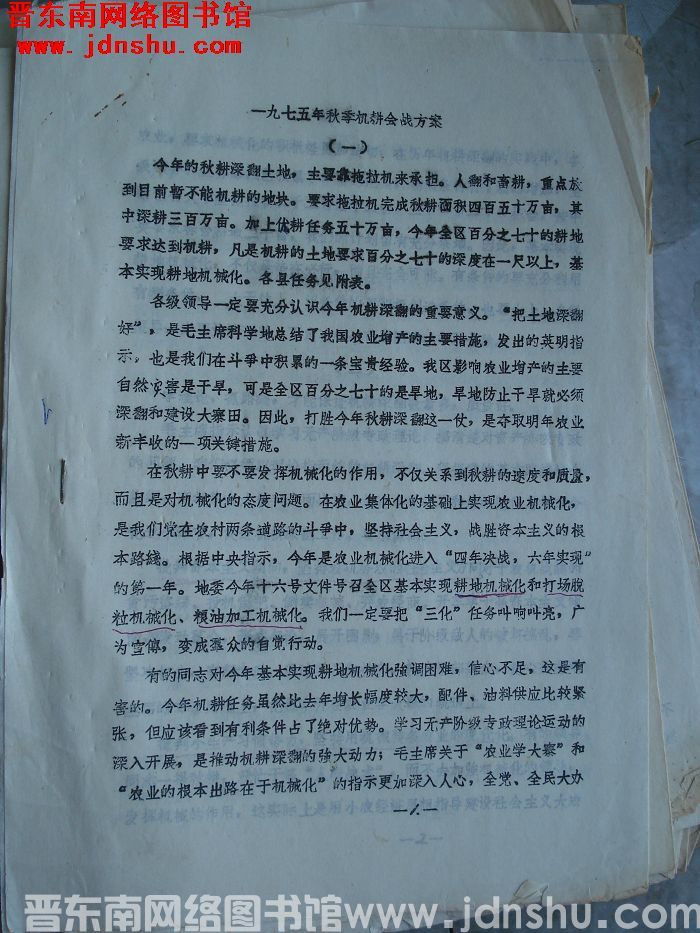 晋东南网络图书馆
www.jdnshu.com
一九七五年秋季机耕会战方案
(一)
今年的秋耕深翻土地，主要靠拖拉机来承担。人翻和畜耕，重点放
到目前暂不能机耕的地块。要求拖拉机完成秋耕面积四百五十万亩，其
中深耕三百万亩。加上优耕任务五十万亩，今年全区百分之七十的耕地
要求达到机耕，凡是机耕的土地要求百分之七十的深度在一尺以上，基
本实现耕地机械化。各县任务见附表。
各级领导一定要充分认识今年机耕深翻的重要意义。“把土地深翻
好”，是毛主席科学地总结了我国农业增产的主要措施，发出的英明指
示，也是我们在斗争中积累的一条宝贵经验。我区影响农业增产的主要
自然灾害是干旱，可是全区百分之七十的是旱地，旱地防止干旱就必须
深翻和建设大寨田。因此，打胜今年秋耕深翻这一仗，是夺取明年农业
新丰收的一项关键措施。
在秋耕中要不要发挥机械化的作用，不仅关系到秋耕的速度和质量，
而且是对机械化的态度问题。在农业集体化的基础上实现农业机械化，
是我们党在农村两条道路的斗争中，坚持社会主义，战胜资本主义的根
本路綫。根据中央指示，今年是农业机械化进入“四年决战，六年实现”
的第一年。地委今年十六号文件号召全区基本实现耕地机械化和打场脱
粒机械化、粮油加工机械化。我们一定要把“三化”任务叫响叫亮，广
为宣傳，变成羣众的自觉行动。
有的同志对今年基本实现耕地机械化強调困难，信心不足，这是有
害的。今年机耕任务虽然比去年增长幅度较大，配件、油料供应比较紧
张，但应该看到有利条件占了绝对优势。学习无产阶级专政理论运动的
深入开展，是推动机耕深翻的強大动力；毛主席关于“农业学大寨”和
“农业的根本出路在于机械化”的指示更加深入人心，全党、全民大办
—1—
—2—
晋东南网络图书馆 www.jdnshu.com